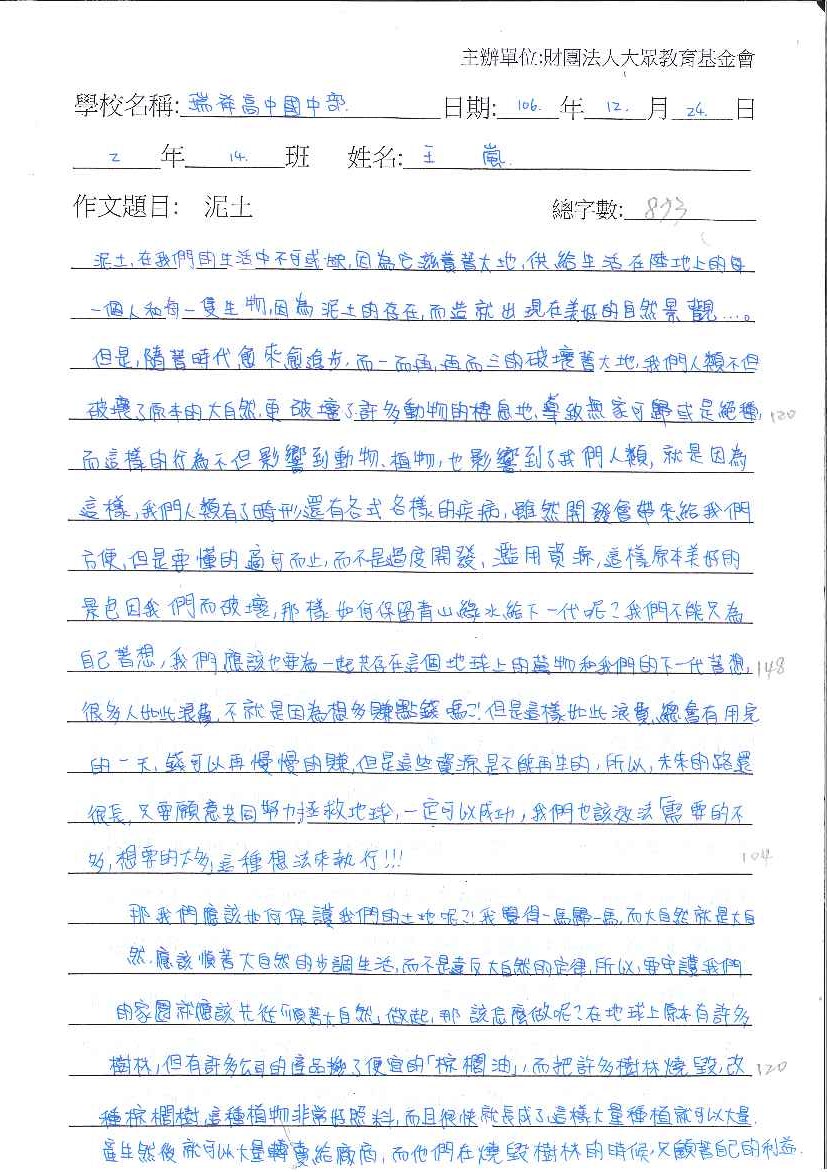 主辦單位:財團法人大眾教育基金會
學校名稱: 瑞祥高中國中部. 日期: 106. 年 12. 月 24. 日
2 年 14. 班 姓名: 王 嵐.
作文題目: 泥土 總字數: 873
泥土,在我們的生活中不可或缺,因為它滋養著大地,供給生活在陸地上的每
一個人和每一隻生物,因為泥土的存在,而造就出現在美好的自然景觀....。
但是,隨著時代愈來愈進步,而一而再,再而三的破壞著大地,我們人類不但
破壞了原本的大自然,更破壞了許多動物的棲息地,導致無家可歸或是絕種, 120
而這樣的行為不但影響到動物、植物,也影響到了我們人類,就是因為
這樣,我們人類有了畸形還有各式各樣的疾病,雖然開發會帶來給我們
方便,但是要懂的適可而止,而不是過度開發、濫用資源,這樣原本美好的
景色因我們而破壞,那樣如何保留青山綠水給下一代呢?我們不能只為
自己著想,我們應該也要為一起共存在這個地球上的萬物和我們的下一代著想, 148
很多人如此浪費,不就是因為想多賺點錢嗎?!但是這樣如此浪費,總會有用完
的一天,錢可以再慢慢的賺,但是這些資源是不能再生的,所以,未來的路還
很長,只要願意共同努力拯救地球,一定可以成功,我們也該效法「需要的不
多,想要的太多」這種想法來執行!!! 104
那我們應該如何保護我們的土地呢?!我覺得一馬歸一馬,而大自然就是大自
然,應該順著大自然的步調生活,而不是違反大自然的定律,所以,要守護我們
的家園就應該先從「順著大自然」做起,那該怎麼做呢?在地球上原本有許多
樹林,但有許多公司的產品換了便宜的「棕櫚油」,而把許多樹林燒毀,改 120
種棕櫚樹,這種植物非常好照料,而且很快就長成了這樣大量種植就可以大量
產生然後就可以大量轉賣給廠商,而他們在燒毀樹林的時候,只顧著自己的利益.